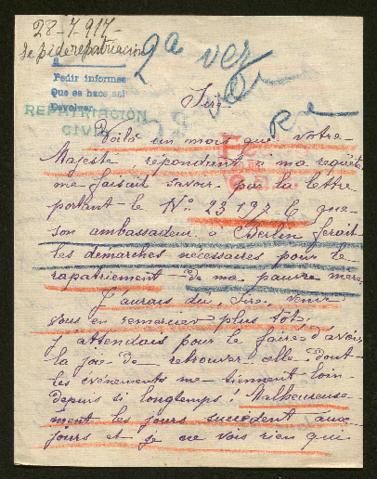 28-7-917-
se pide repatriación
2ª vez
Pedir informes
Que se hace así
Devolver
REPATRIACIÓN
CIVIL
Sire
Voilà un mois que votre
Majesté, répondant à ma requête
me faisait savoir par la lettre
portant le Nº 23197 C que
son ambassadeur à Berlin ferait
les démarches nécessaires pour le
rapatriement de ma pauvre mère
J'aurais dû, Sire, venir
vous en remercier plus tôt.
J'attendais pour le faire d'avoir
la joie de retrouver celle dont
les événements me tiennent loin
depuis si longtemps! Malheureuse-
ment les jours succèdent aux
jours et je ne vois rien qui